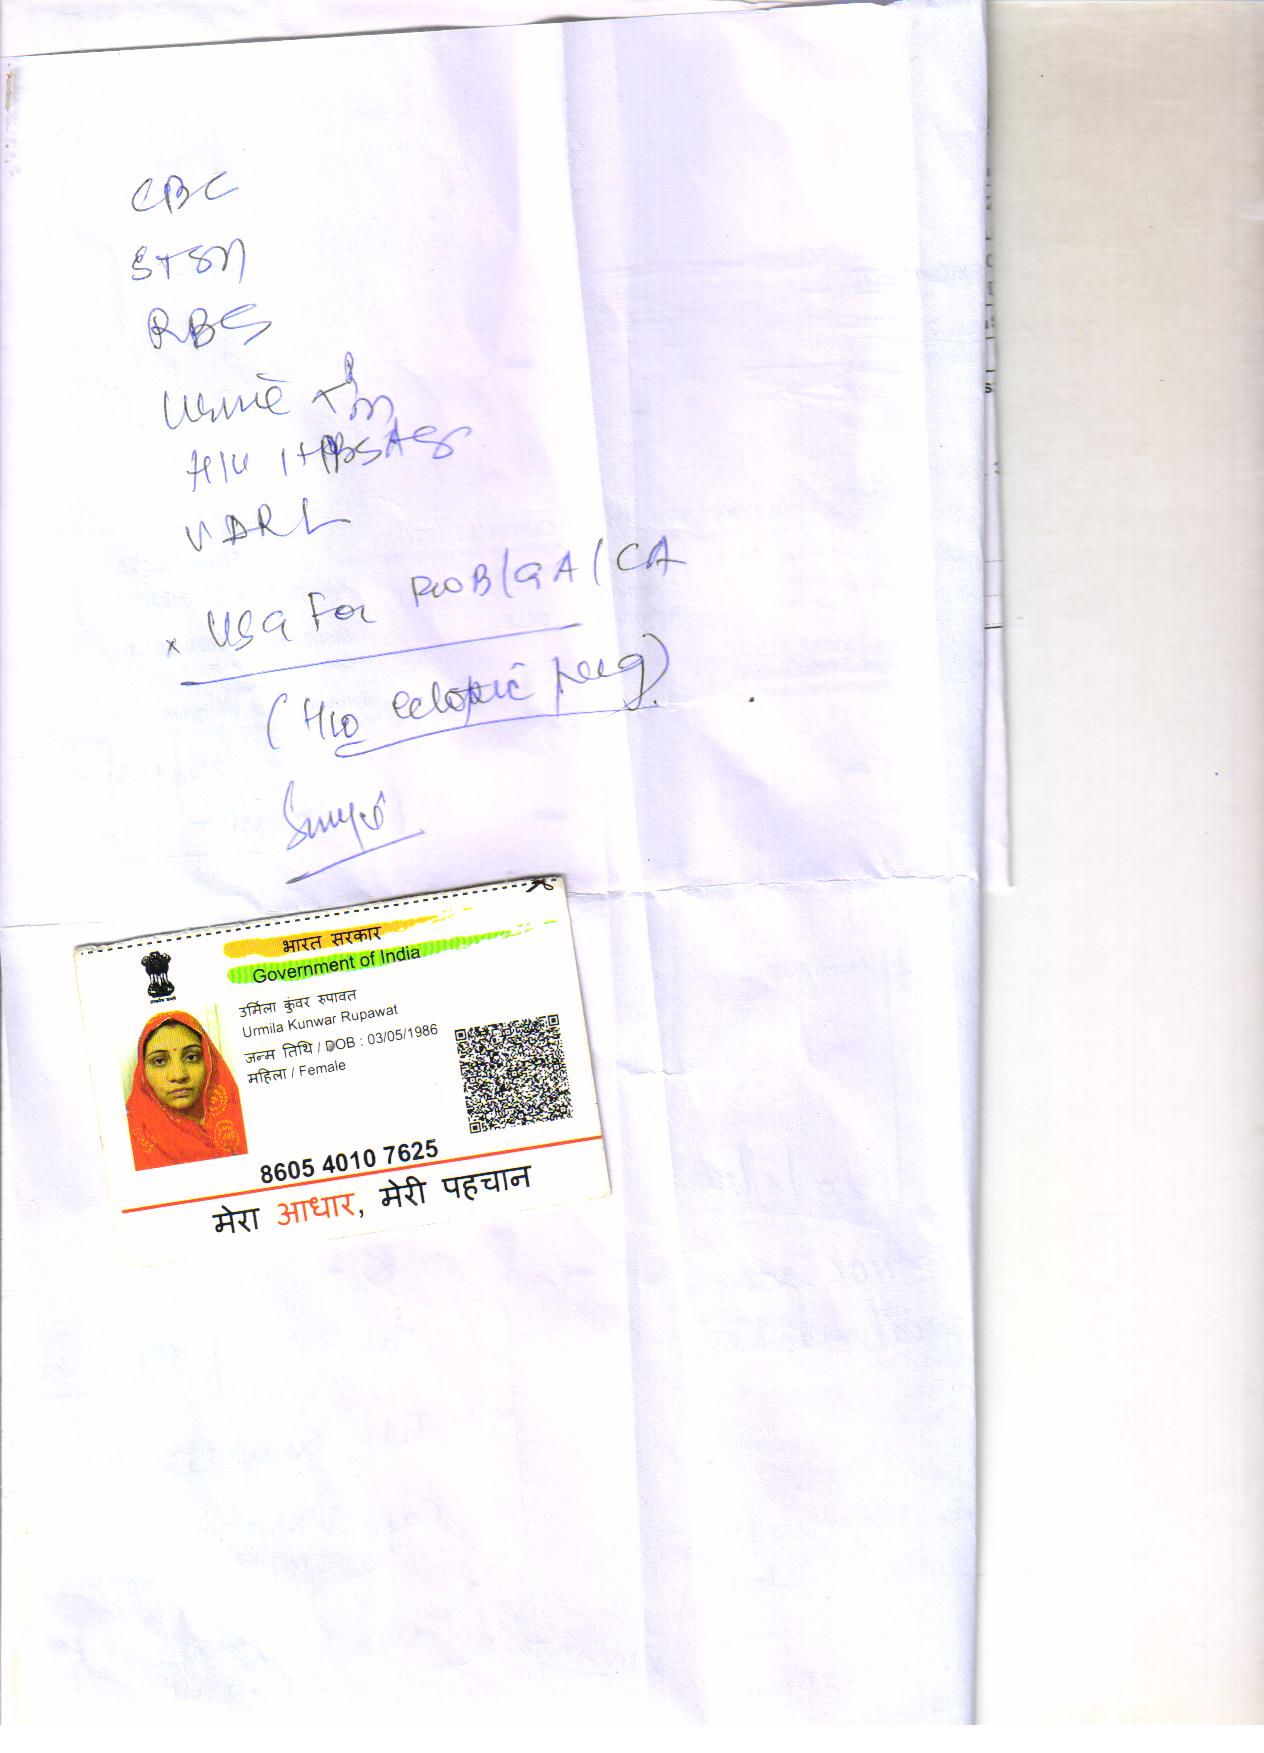 CBC
RBS
Urine
HIV HBSAg
VDRL
x USG For /GA/CA
(H/o ectopic preg)
भारत सरकार
Government of India
उर्मिला कुंवर रुपावत
Urmila Kunwar Rupawat
जन्म तिथि / DOB : 03/05/1986
महिला / Female
8605 4010 7625
मेरा आधार, मेरी पहचान